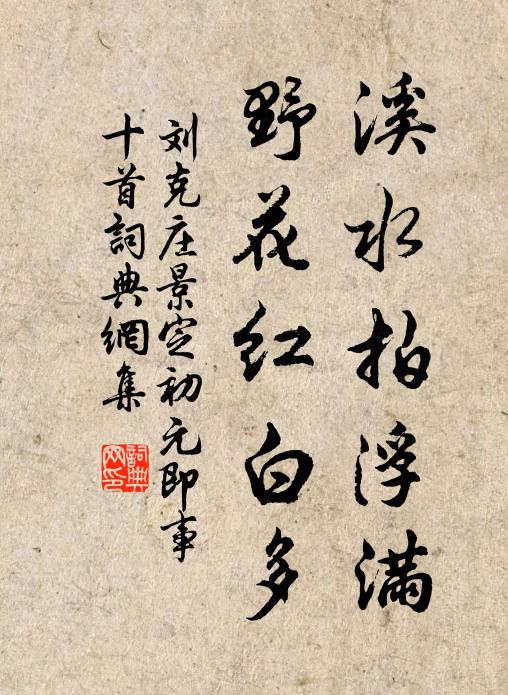 溪水拍浮满
野花红白多
刘克庄景定初元即事
十首詞典網集
詞典网印